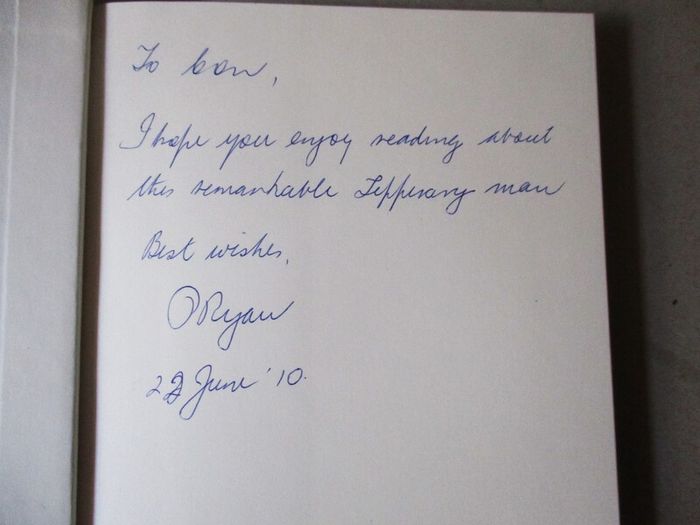 To Con,
I hope you enjoy reading about
this remarkable Tipperary man
Best wishes,
P Ryan
22 June '10.